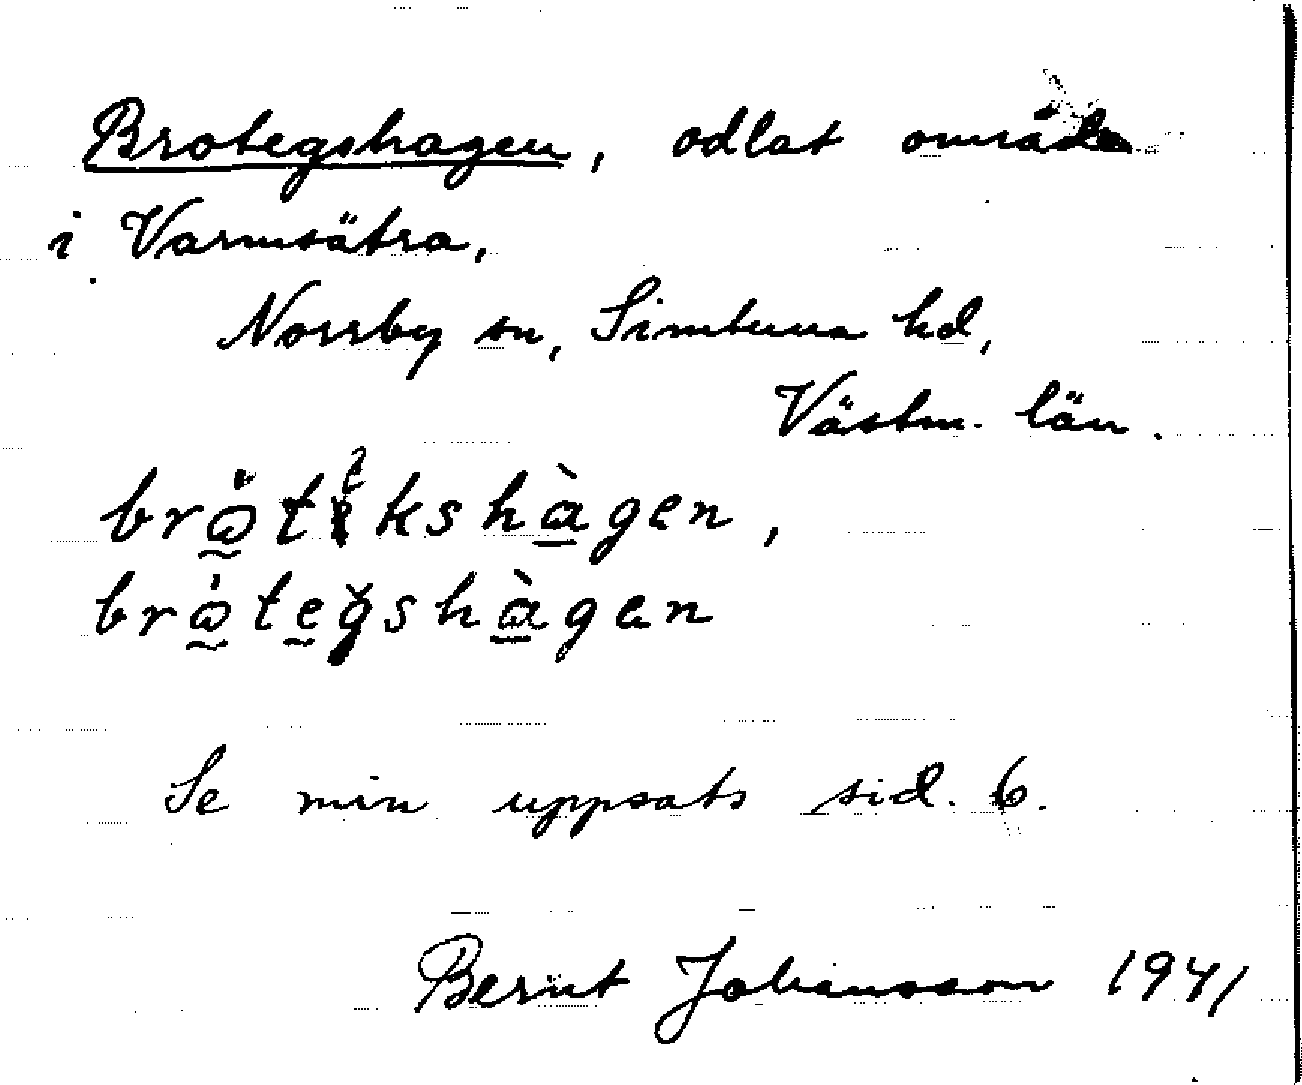 Brotegshagen, odlat område
i Varmsätra,
Norrby sn, Simtuna hd,
Västm. län.
brötekshàgen,
brótegshàgen
Se min uppsats sid. 6.
Bernt Johansson 1941